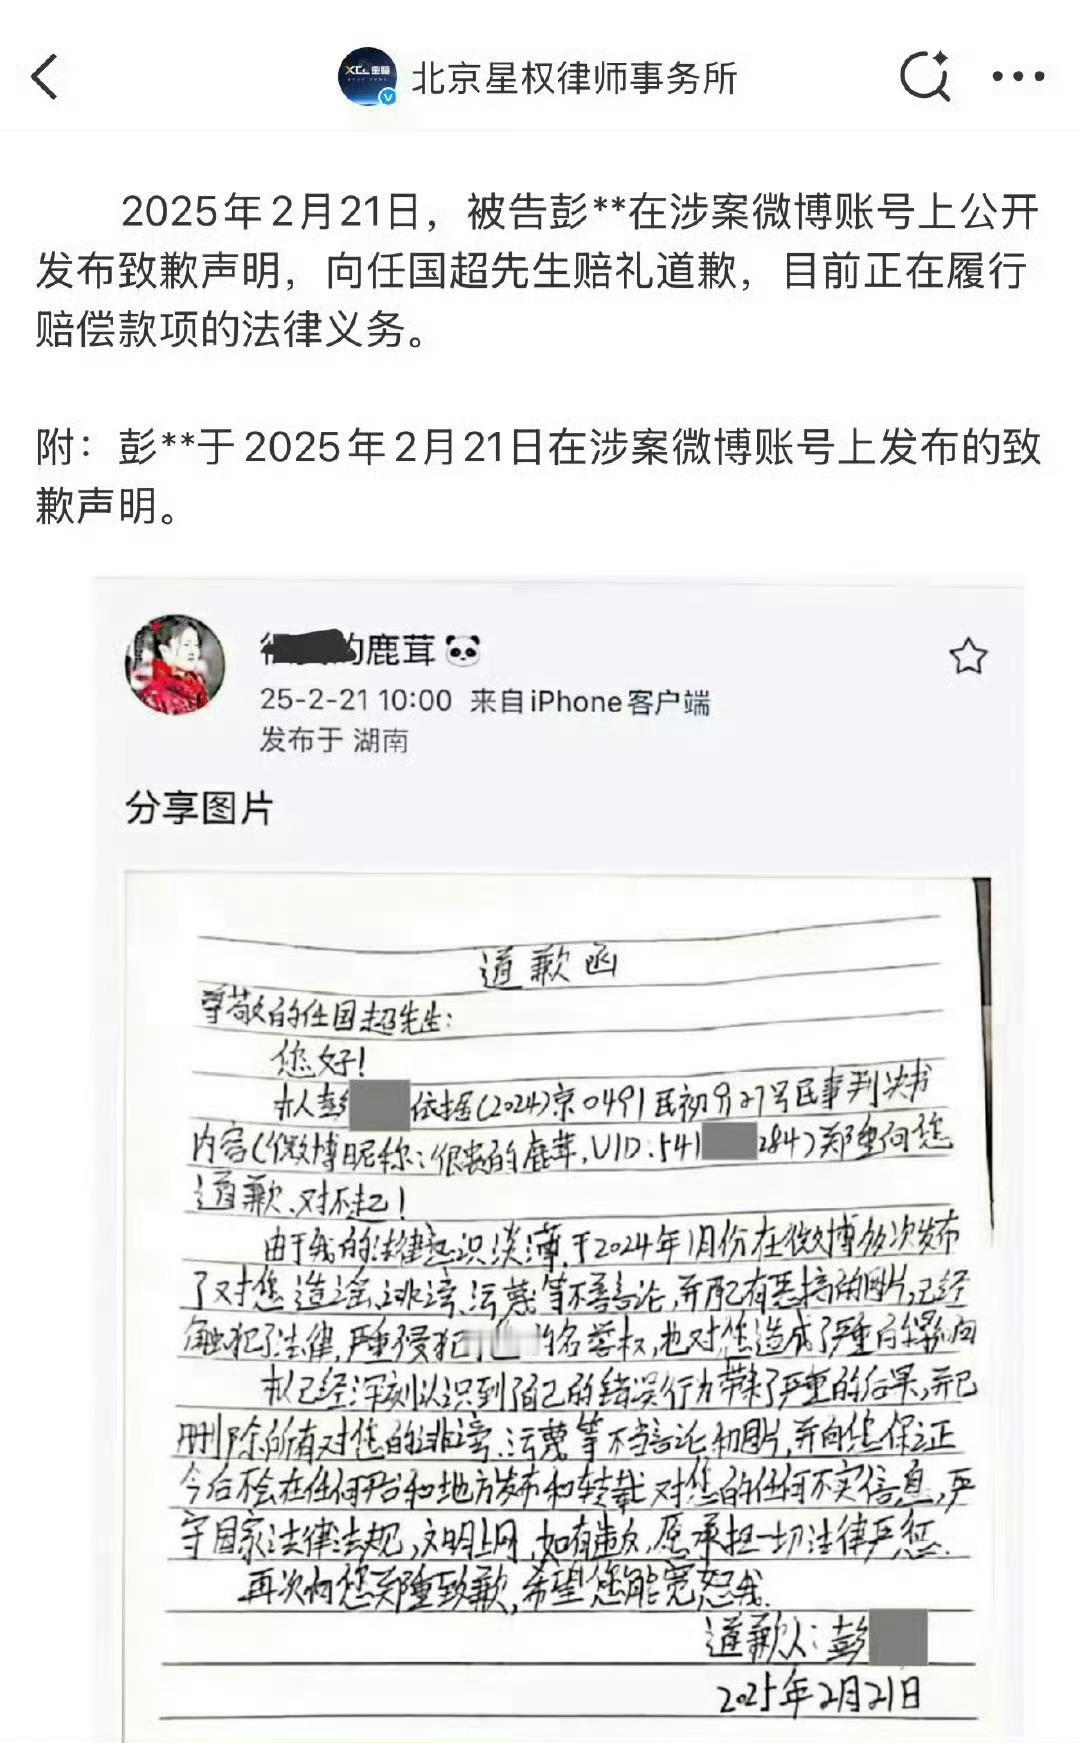 XCL 星权
北京星权律师事务所
2025年2月21日，被告彭**在涉案微博账号上公开
发布致歉声明，向任国超先生赔礼道歉，目前正在履行
赔偿款项的法律义务。
附：彭**于2025年2月21日在涉案微博账号上发布的致
歉声明。
的鹿茸🐼
25-2-21 10:00 来自iPhone客户端
发布于 湖南
分享图片
道歉函
尊敬的任国超先生：
您好！
本人彭 依据(2024)京0491民初 27号民事判决书
内容(微博昵称：很 的鹿茸，UID：541 284)郑重向您
道歉、对不起！
由于我的法律意识淡薄，于2024年1月份在微博多次发布
了对您造谣、诽谤、污蔑等不善言论，并配有恶搞的图片，已经
触犯了法律，严重侵犯 的名誉权，也对您造成了严重的影响
本人已经深刻认识到自己的错误行为带来了严重的后果，并已
删除所有对您的诽谤、污蔑等不当言论和图片，并向您保证
今后不会在任何平台和地方发布和转载对您的任何不实信息，严
守国家法律法规，文明上网，如有违反，愿承担一切法律严惩。
再次向您郑重致歉，希望您能宽恕我。
道歉人：彭
2025年2月21日